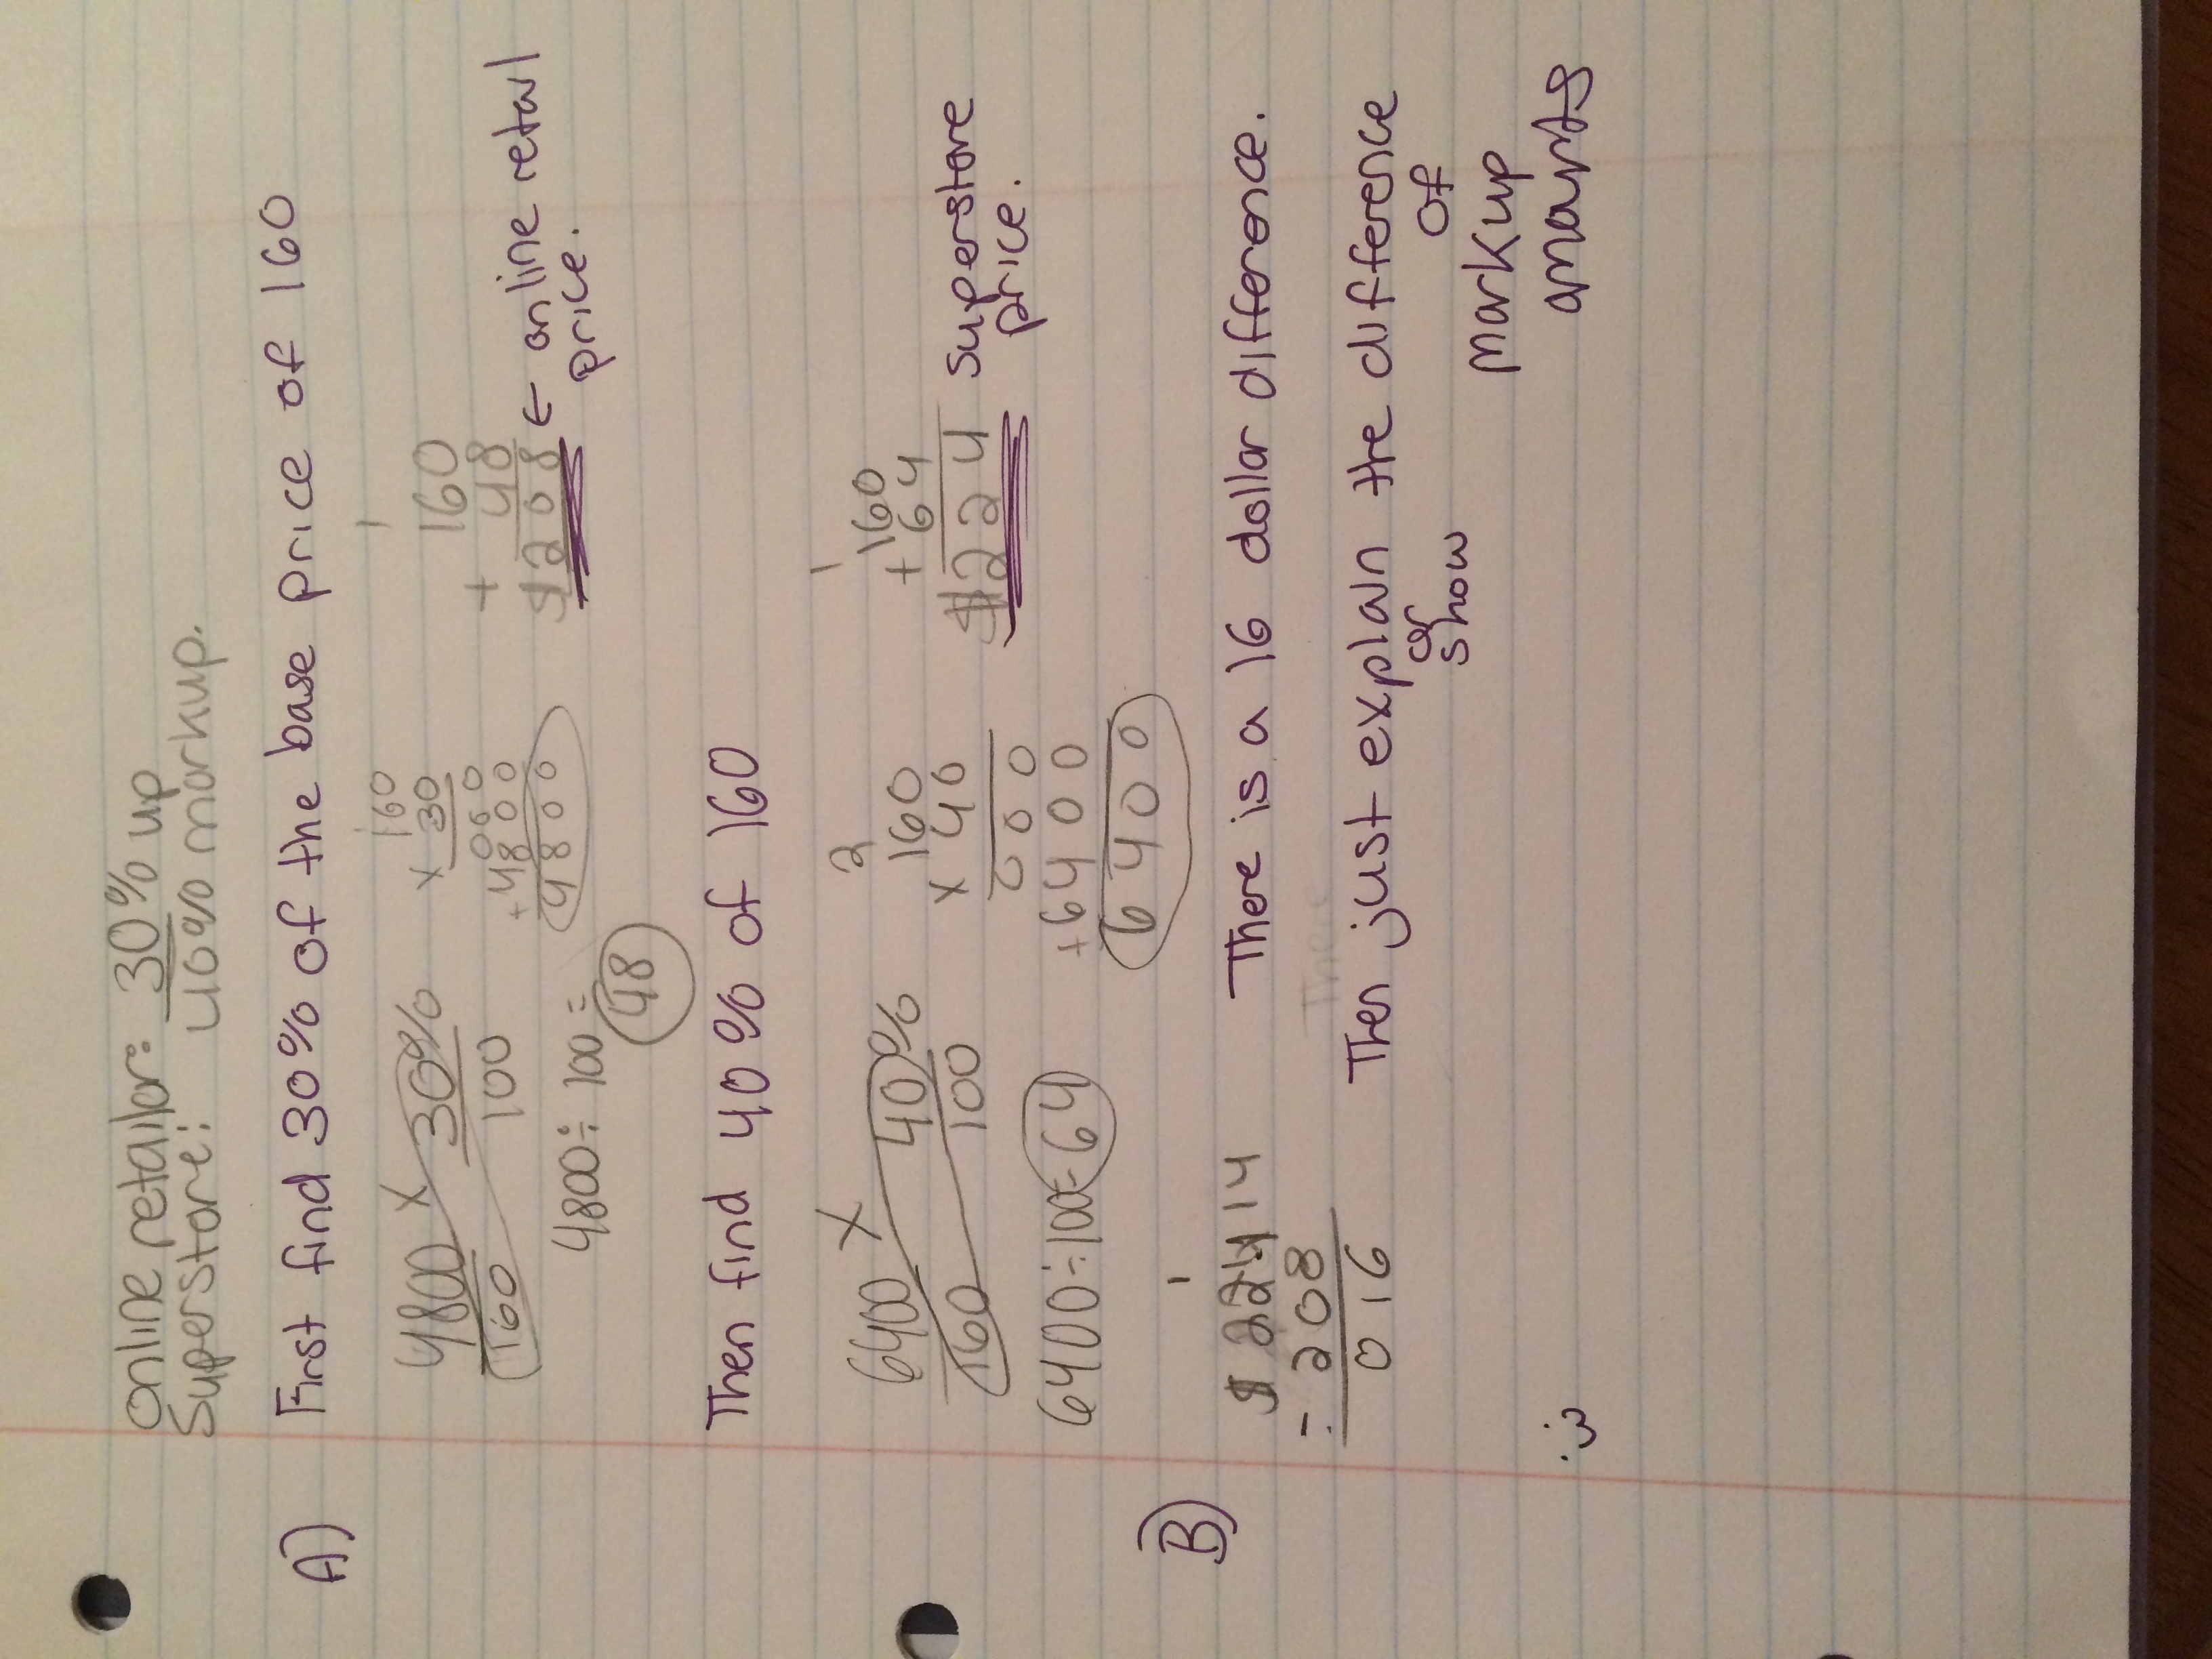 online retailor: 30% up
Superstore: 40% markup.
A) First find 30% of the base price of 160
4800 x 30% / 160 100
160
x 30
000
+ 4800
4800
1
160
+ 48
$208 ← online retail price.
4800 ÷ 100 = 48
Then find 40% of 160
6400 x 40% / 160 100
2
160
x 40
000
+6400
6400
1
+ 160
64
$224 superstore price.
6400 ÷ 100 = 64
B) $224 14
- 208
016
There is a 16 dollar difference.
Then just explain or show the difference of markup amounts
:)